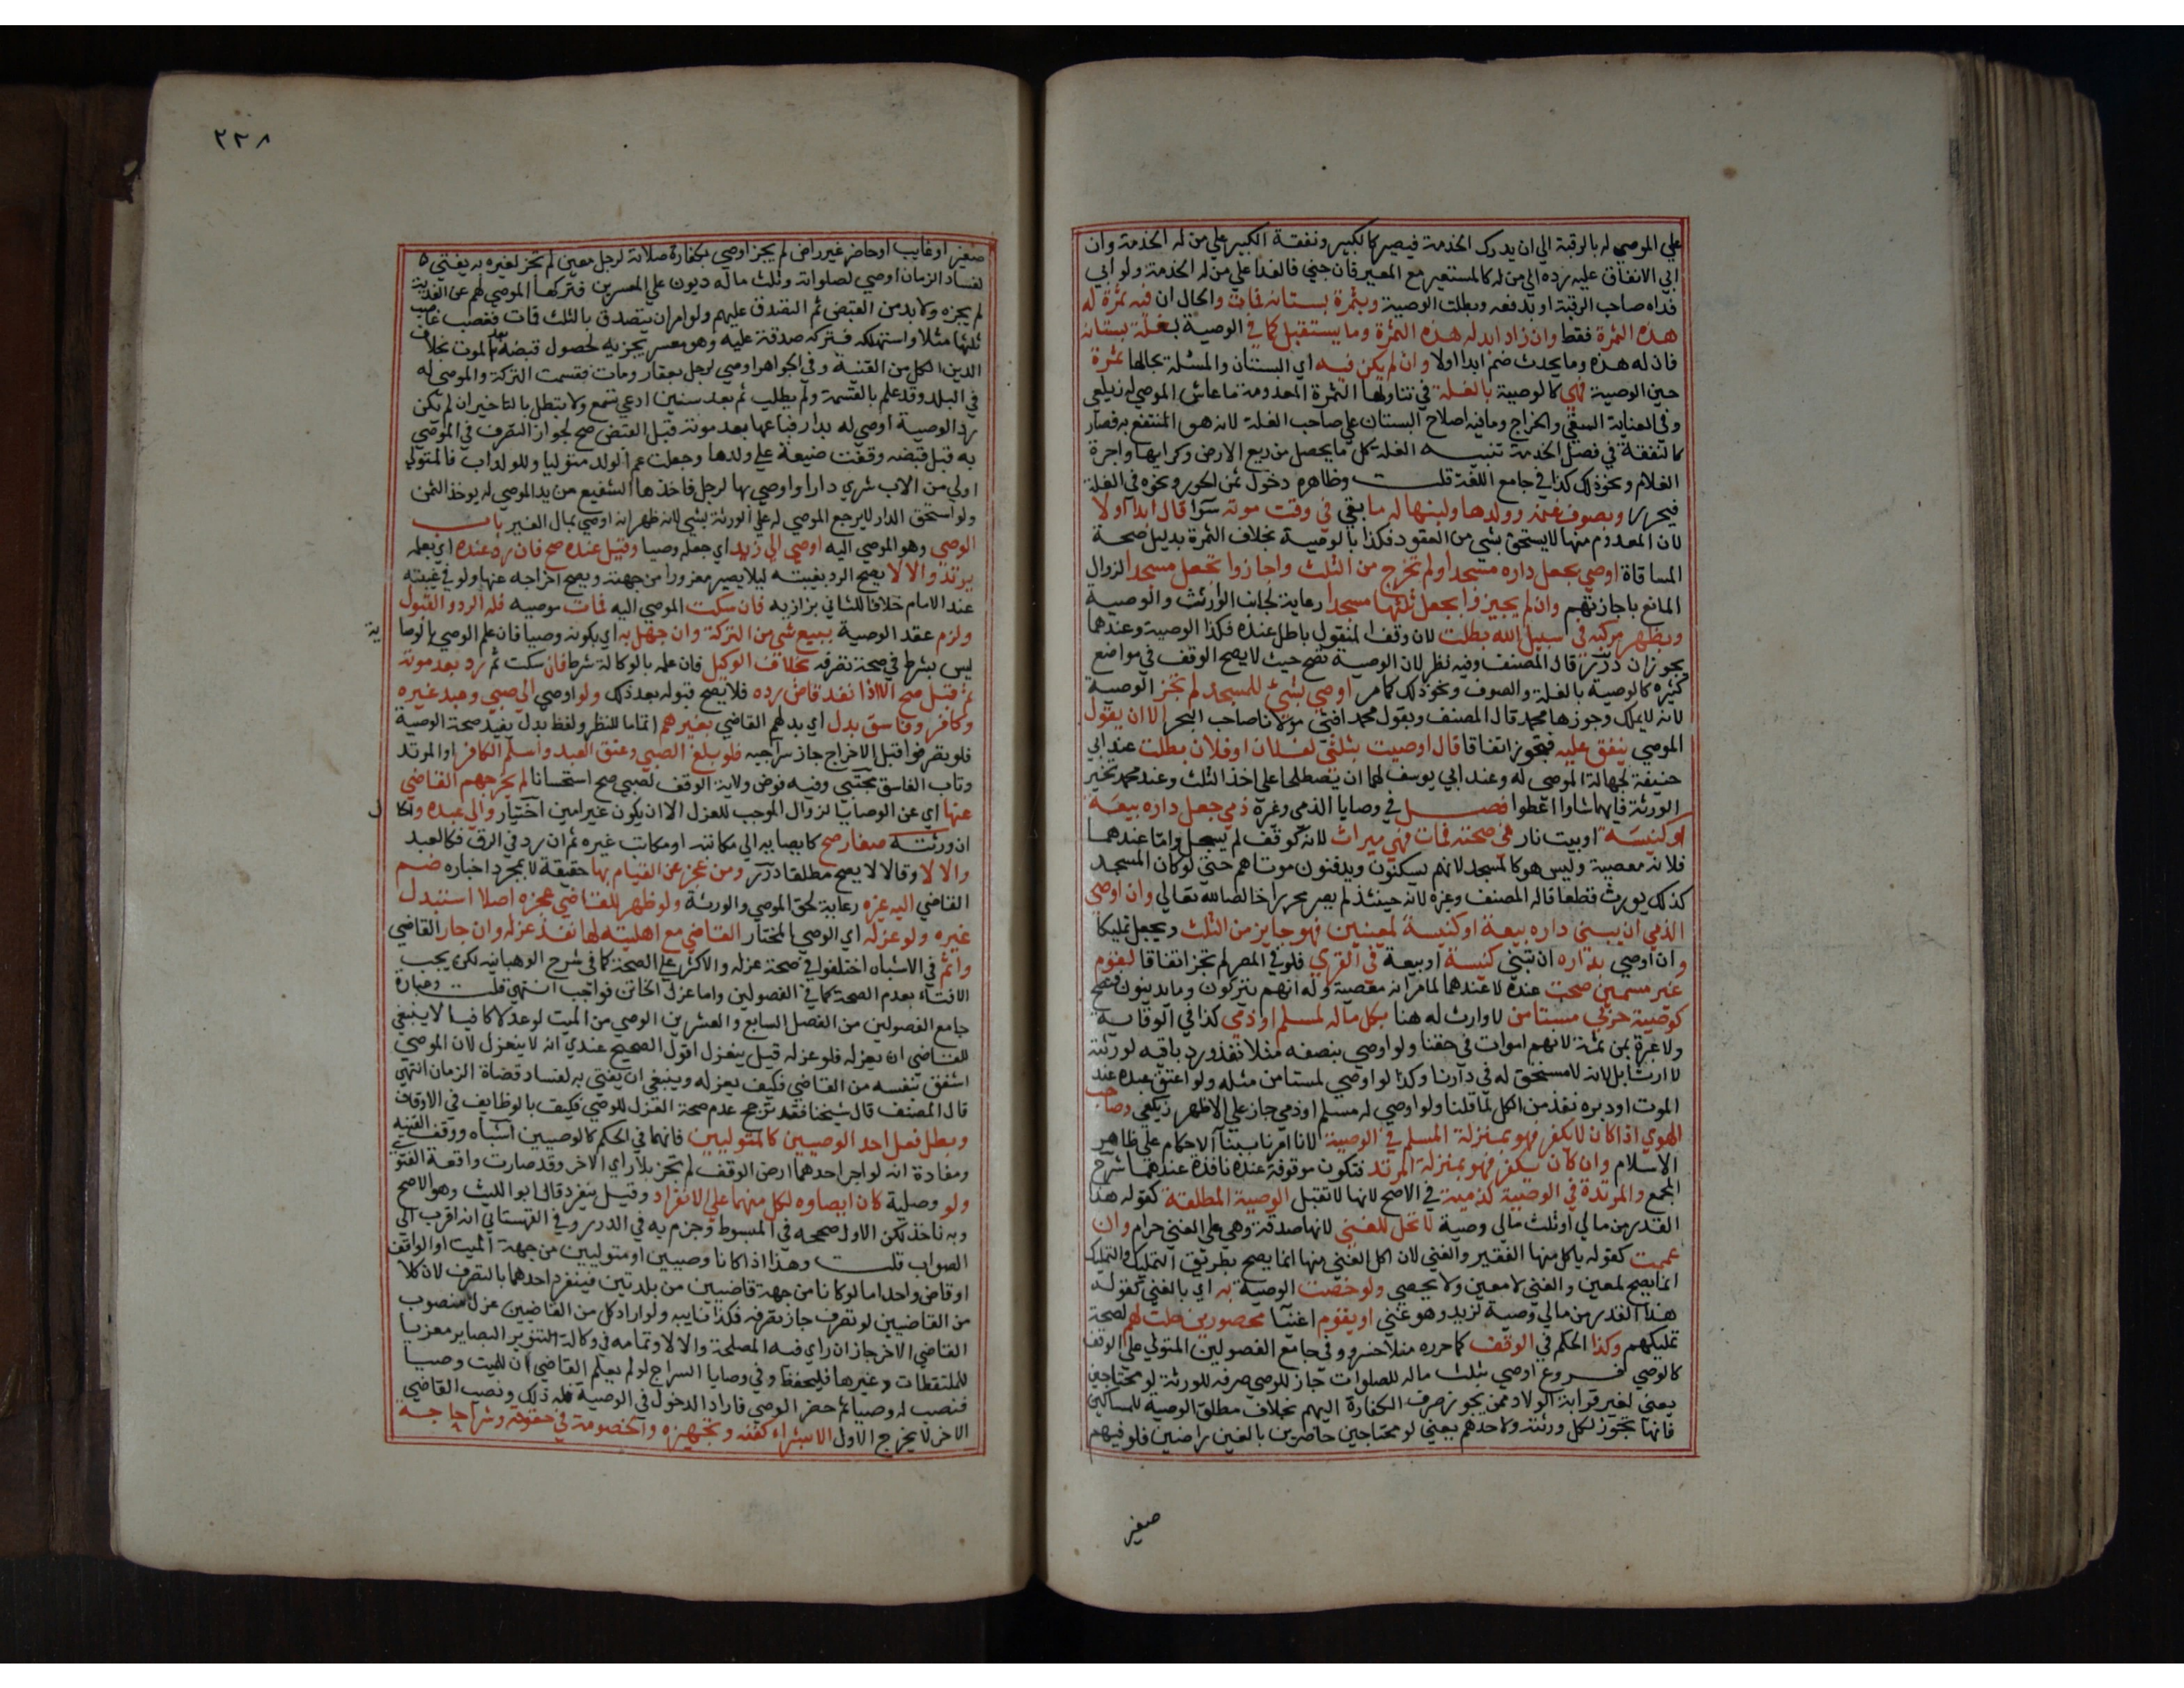 علي الموصي له بالرقبة الي ان يدرك الخدمة فيصير كالكبير ونفقة الكبير علي من له الخدمة وان
ابي الانفاق عليه رده الي من له كالمستعير مع المعير فان جني فالفدا علي من له الخدمة ولو ابي
فداه صاحب الرقبة او يدفعه وبطلت الوصية وبثمرة بستانه فمات والحال ان فيه ثمرة له
هذه الثمرة فقط وان زاد ابدا له هذه الثمرة وما يستقبل كما في الوصية بغلة بستانه
فان له هذه وما يحدث ضم ابدا اولا وان لم يكن فيه اي البستان والمسئلة بحالها ثمرة
حين الوصية فهي كالوصية بالغلة في تناولها الثمرة المعدومة ما عاش الموصي له زيلعي
وفي العناية السقي والخراج وما فيه اصلاح البستان علي صاحب الغلة لانه هو المنتفع به فصار
كالنفقة في فصل الخدمة تنبيه الغلة كل ما يحصل من ريع الارض وكرايها واجرة
الغلام ونحو ذلك كذا في جامع اللغة قلت وظاهره دخول ثمن الحور ونحوه في الغلة
فيحرر وبصوف غنمه وولدها ولبنها له ما بقي في وقت موته سوا قال ابدا اولا
لان المعدوم منها لا يستحق بشي من العقود فكذا بالوصية بخلاف الثمرة بدليل صحة
المساقاة اوصي بجعل داره مسجدا ولم تخرج من الثلث واجازوا تجعل مسجدا لزوال
المانع باجازتهم وان لم يجيزوا يجعل ثلثها مسجدا رعاية لجانب الوارث والوصية
وبظهر مركبه في سبيل الله بطلت لان وقف المنقول باطل عنده فكذا الوصية وعندهما
يجوزان درر قال المصنف وفيه نظر لان الوصية تصح حيث لا يصح الوقف في مواضع
كثيره كالوصية بالغلة والصوف ونحو ذلك كما مر اوصي بشيء للمسجد لم تجز الوصية
لانه لا يملك وجوزها محمد قال المصنف وبقول محمد افتي مولانا صاحب البحر الا ان يقول
الموصي ينفق عليه فيجوز اتفاقا قال اوصيت بثلثي لفلان او فلان بطلت عند ابي
حنيفة لجهالة الموصي له وعند ابي يوسف لهما ان يصطلحا علي اخذ الثلث وعند محمد تخير
الورثة فايهما شاوا اعطوا فصل في وصايا الذمي وغيره ذمي جعل داره بيعة
او كنيسة او بيت نار في صحته فمات فهي ميراث لانه كوقف لم يسجل واما عندهما
فلانه معصية وليس هو كالمسجد لانهم يسكنون ويدفنون موتاهم حتي لو كان المسجد
كذلك يورث قطعا قاله المصنف وغيره لانه حينئذ لم يصر محررا خالصا لله تعالي وان اوصي
الذمي ان يبني داره بيعة او كنيسة لمعينين فهو جايز من الثلث ويجعل تمليكا
وان اوصي بداره ان تبني كنيسة او بيعة في القري فلو في المصر لم تجز اتفاقا لقوم
غير مسمين صحت عنده لا عندهما لما مر انه معصية وله انهم يتركون وما يدينون فتصح
كوصية حربي مستامن لا وارث له هنا بكل ماله لمسلم او ذمي كذا في الوقاية
ولا عبرة بمن ثمة لانهم اموات في حقنا ولو اوصي بنصفه مثلا نفذ ورد باقيه لورثته
لا ارثا بل لانه لا مستحق له في دارنا وكذا لو اوصي لمستامن مثله ولو اعتق عبده عند
الموت او دبره نفذ من الكل لما قلنا ولو اوصي له مسلم او ذمي جاز علي الاظهر زيلعي وصاحب
الهوي اذا كان لا يكفر فهو بمنزلة المسلم في الوصية لانا امرنا ببنا الاحكام علي ظاهر
الاسلام وان كان يكفر فهو بمنزلة المرتد فتكون موقوفة عنده نافذة عندهما شرح
المجمع والمرتدة في الوصية كذمية في الاصح لانها لا تقتل الوصية المطلقة كقوله هذا
القدر من مالي او ثلث مالي وصية لا تحل للغني لانها صدقة وهي علي الغني حرام وان
عممت كقوله ياكل منها الفقير والغني لان اكل الغني منها انما يصح بطريق التمليك والتمليك
انما يصح لمعين والغني لا معين ولا يحصي ولو خصت الوصية به اي بالغني كقوله
هذا القدر من مالي وصية لزيد وهو غني او لقوم اغنيا محصورين حلت لهم لصحة
تمليكهم وكذا الحكم في الوقف كما حرره منلا خسرو وفي جامع الفصولين المتولي علي الوقف
كالوصي فروع اوصي بثلث ماله للصلوات جاز للوصي صرفه للورثة لو محتاجين
يعني لغير قرابة الولاد ممن يجوز صرف الكفارة اليهم بخلاف مطلق الوصية للمساكين
فانها تجوز لكل ورثته ولاحدهم يعني لو محتاجين حاضرين بالغين راضين فلو فيهم
صغير
٢٣٨
صغير او غايب او حاضر غير راض لم يجز اوصي بكفارة صلاته لرجل معين لم تجز لغيره به يفتي
لفساد الزمان اوصي لصلواته وثلث ماله ديون علي المعسرين فتركها الموصي لهم عن الفدية
لم يجزه ولا بد من القبض ثم التصدق عليهم ولو امر ان يتصدق بالثلث فمات فغصب غاصب
ثلثها مثلا واستهلكه فتركه صدقة عليه وهو معسر يجزيه لحصول قبضه بعد الموت بخلاف
الدين الكل من القنية وفي الجواهر اوصي لرجل بعقار ومات فقسمت التركة والموصي له
في البلد وقد علم بالقسمة ولم يطلب ثم بعد سنين ادعي تسمع ولا تبطل بالتاخير ان لم يكن
رد الوصية اوصي له بدار فباعها بعد موته قبل القبض صح لجواز التصرف في الموصي
به قبل قبضه وقفت ضيعة علي ولدها وجعلت عم الولد متوليا وللولد اب فالمتولي
اولي من الاب شري دارا واوصي بها لرجل فاخذها الشفيع من يد الموصي له يوخذ الثمن
ولو استحق الدار لا يرجع الموصي له علي الورثة بشي لانه ظهر انه اوصي بمال الغير باب
الوصي وهو الموصي اليه اوصي الي زيد اي جعله وصيا وقبل عنده صح فان رد عنده اي بعلمه
يرتد والا لا يصح الرد بغيبته ليلا يصير مغرورا من جهته ويصح اخراجه عنها ولو في غيبته
عند الامام خلافا للثاني بزازيه فان سكت الموصي اليه فمات موصيه فله الرد والقبول
ولزم عقد الوصية ببيع شي من التركة وان جهل به اي بكونه وصيا فان علم الوصي بالوصاية
ليس بشرط في صحة تصرفه بخلاف الوكيل فان علمه بالوكالة شرط فان سكت ثم رد بعد موته
ثم قبل صح الا اذا نفذ قاض رده فلا يصح قبوله بعد ذلك ولو اوصي الي صبي وعبد غيره
وكافر وفاسق بدل اي بدلهم القاضي بغيرهم اتماما للنظر ولفظ بدل يفيد صحة الوصية
فلو تصرفوا قبل الاخراج جاز سراجيه فلو بلغ الصبي وعتق العبد واسلم الكافر او المرتد
وتاب الفاسق مجتبي وفيه فوض ولاية الوقف لصبي صح استحسانا لم يخرجهم القاضي
عنها اي عن الوصايا لزوال الموجب للعزل الا ان يكون غير امين اختيار والي عبده والحال
ان ورثته صغار صح كايصايه الي مكاتبه او مكاتب غيره ثم ان رد في الرق فكالعبد
والا لا وقالا لا يصح مطلقا درر ومن عجز عن القيام بها حقيقة لا بمجرد اخباره ضم
القاضي اليه غيره رعاية لحق الموصي والورثة ولو ظهر للقاضي عجزه اصلا استبدل
غيره ولو عزله اي الوصي المختار القاضي مع اهليته لها نفذ عزله وان جار القاضي
واثم في الاشباه اختلفوا في صحة عزله والاكثر علي الصحة كما في شرح الوهبانيه لكن يجب
الافتاء بعدم الصحة كما في الفصولين واما عزل الخاين فواجب انتهي قلت وعبارة
جامع الفصولين من الفصل السابع والعشرين الوصي من الميت لو عدلا كافيا لا ينبغي
للقاضي ان يعزله فلو عزله قيل ينعزل اقول الصحيح عندي انه لا ينعزل لان الموصي
اشفق بنفسه من القاضي فكيف يعزله وينبغي ان يفتي به لفساد قضاة الزمان انتهي
قال المصنف قال شيخنا فقد ترجح عدم صحة العزل للوصي فكيف بالوظايف في الاوقاف
وبطل فعل احد الوصيين كالمتوليين فانهما في الحكم كالوصيين اشباه ووقف القنيه
ومفادة انه لو اجر احدهما ارض الوقف لم تجز بلا راي الاخر وقد صارت واقعة الفتوي
ولو وصلية كان ايصاوه لكل منهما علي الانفراد وقيل ينفرد قال ابو الليث وهو الاصح
وبه ناخذ لكن الاول صححه في المبسوط وجزم به في الدرر وفي القهستاني انه اقرب الي
الصواب قلت وهذا اذا كانا وصيين او متوليين من جهة الميت او الواقف
او قاض واحد اما لو كانا من جهة قاضيين من بلدتين فينفرد احدهما بالتصرف لان كلا
من القاضيين لو تصرف جاز تصرفه فكذا نايبه ولو اراد كل من القاضيين عزل منصوب
القاضي الاخر جاز ان راي فيه المصلحة والا لا وتمامه في وكالة التنوير البصاير معزيا
للملتقطات وغيرها فليحفظ وفي وصايا السراج لو لم يعلم القاضي ان للميت وصيا
فنصب له وصيا ثم حضر الوصي فاراد الدخول في الوصية فله ذلك ونصب القاضي
الاخر لا يخرج الاول الا بشراء كفنه وتجهيزه والخصومة في حقوقه وشراء حاجة